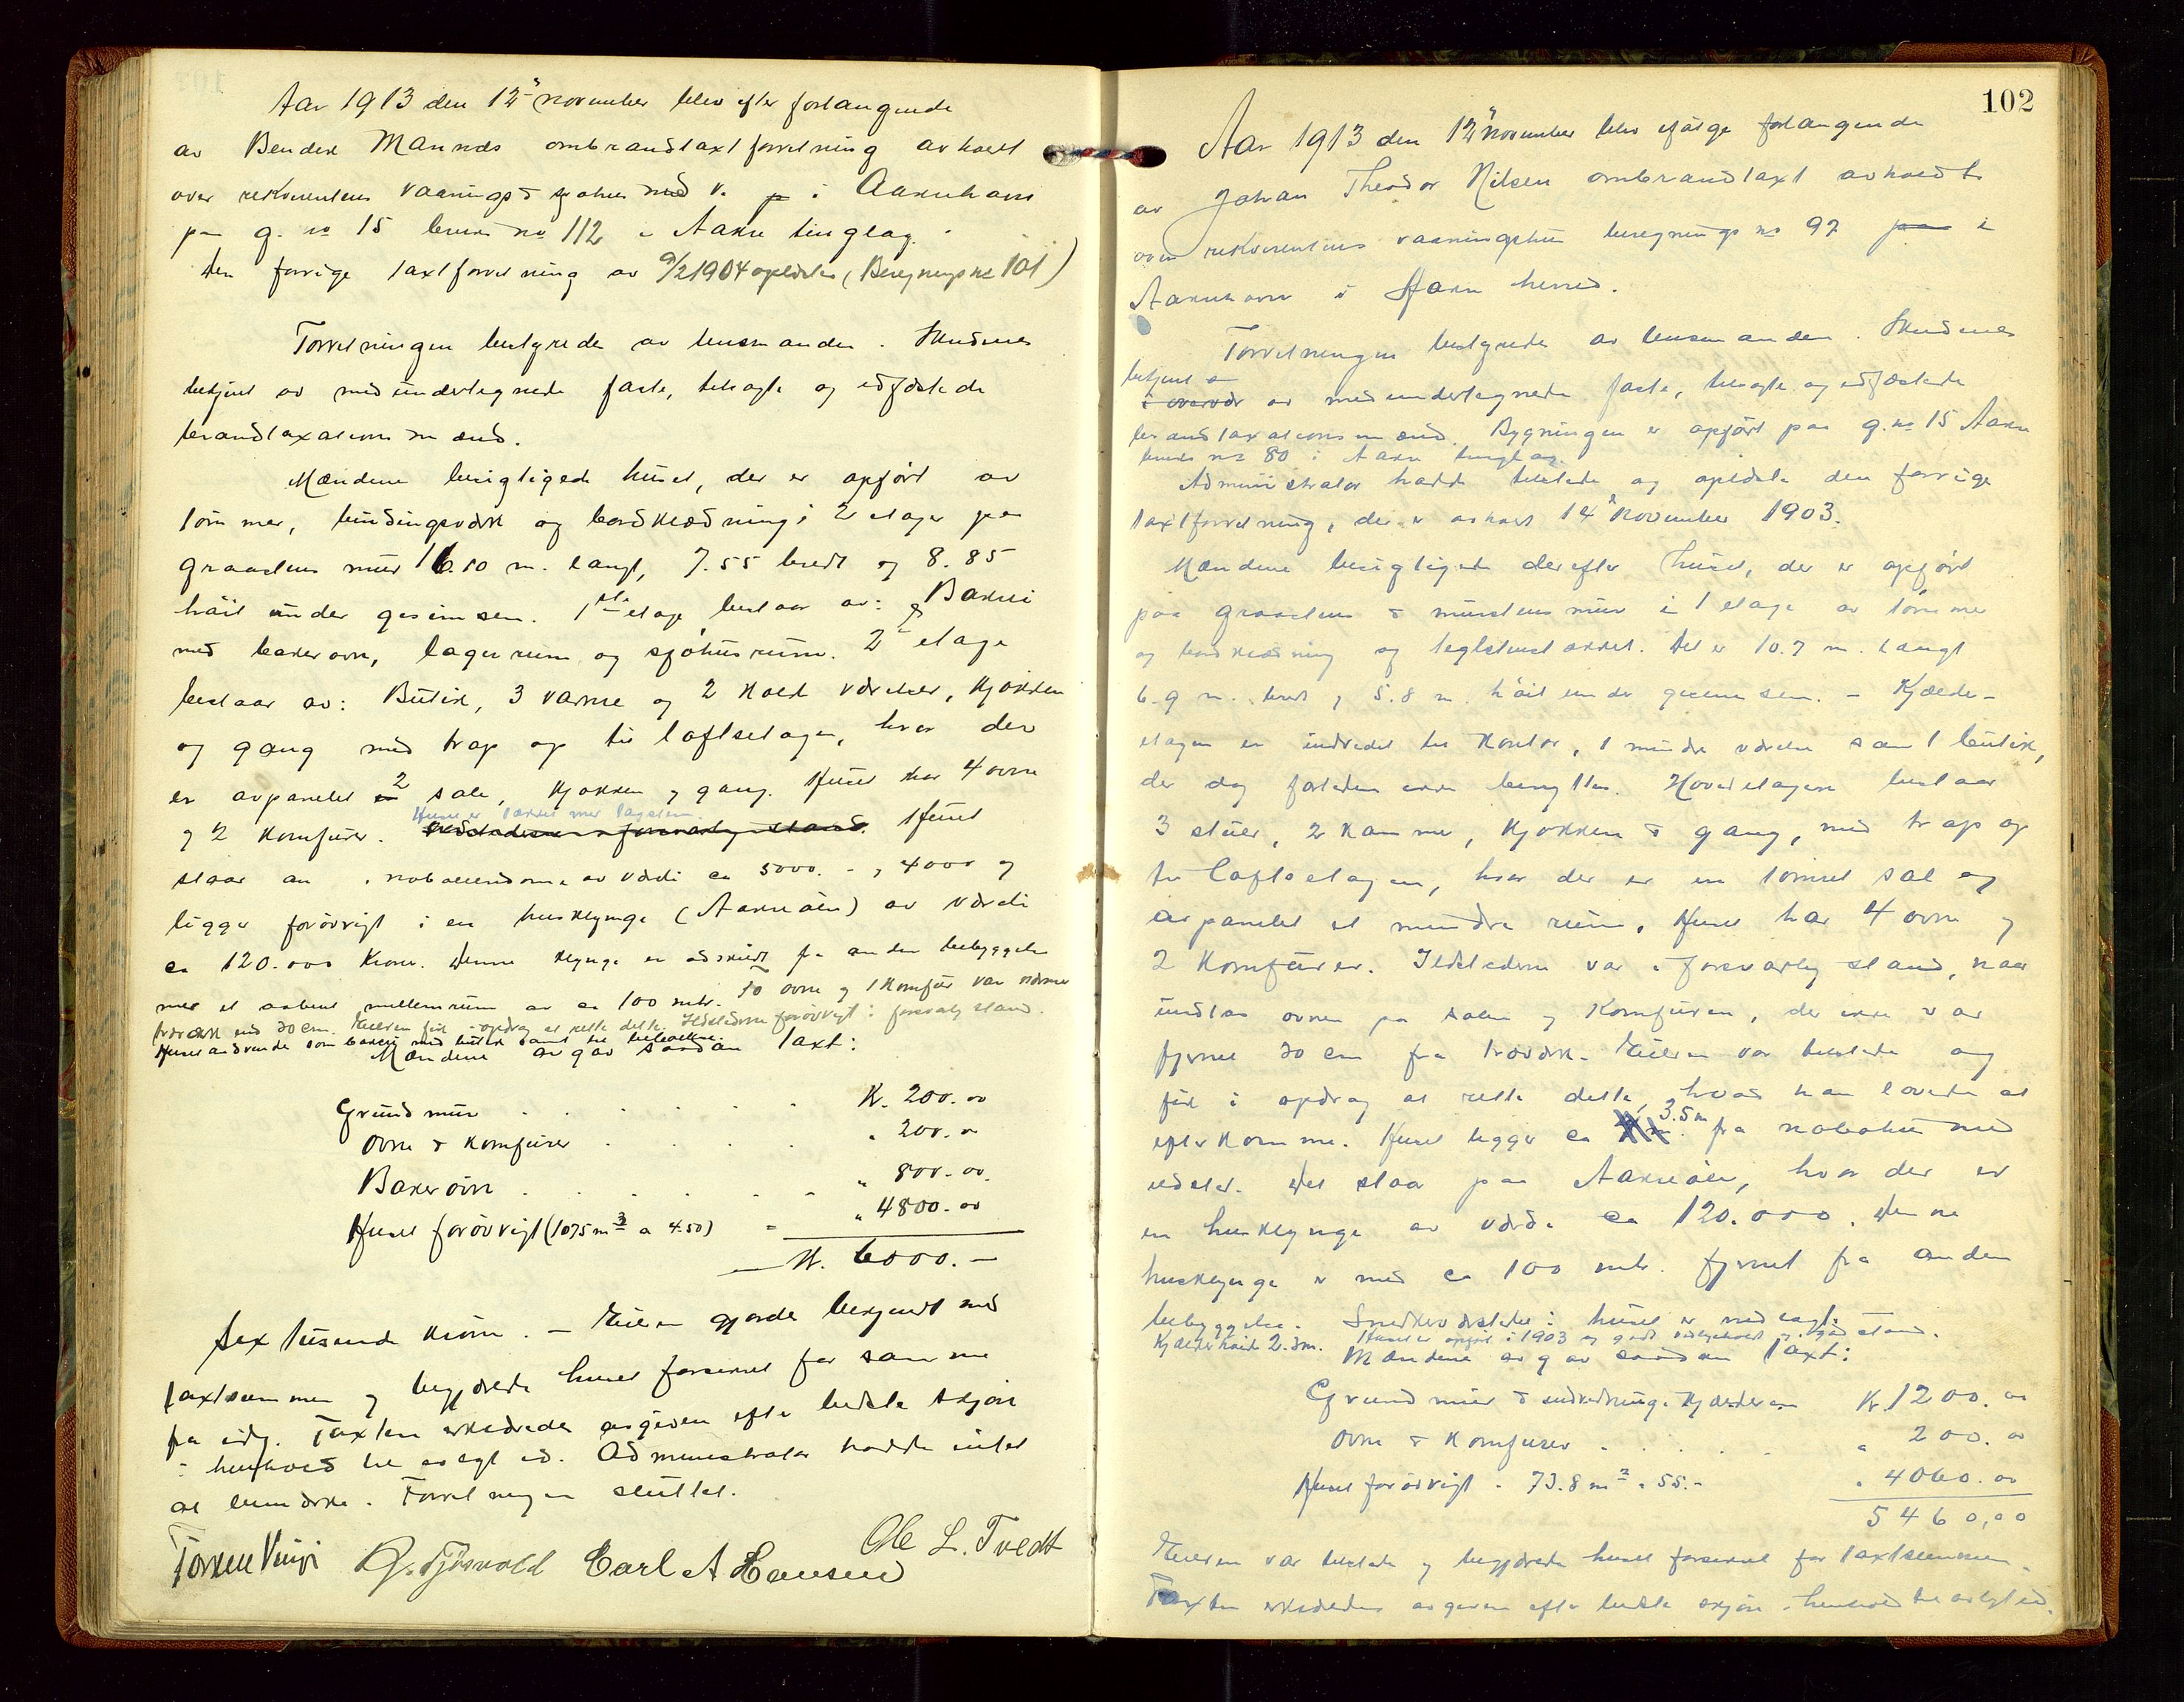 Aar 1913 den 12te november blev efter forlangende
av Bendix Mannes ombrandtaxtforretning avholdt
over rekvirentens vaanings & sjøhus med v. i Aakrehavn
paa g. no 15 bruks no 112 i Aakre tinglag.
Den forrige taxtforretning av 9/2 1904 oplæstes (Beregnings no 101)
Forretningen bestyredes av lensmanden i Skudenes
betjent av medundertegnede faste, tilsagte og edfæstede
brandtaxationsmænd.
Mændene besigtigede huset, der er opført av
tømmer, bindingsverk og bordklædning i 2 etager paa
graastens mur 16.10 m. langt, 7.55 bredt og 8.85
høit under gesimsen. 1ste etage bestaar av: Bakeri
med bakerovn, lagerrum og sjøhusrum. 2 etage
bestaar av: Butik, 3 varme og 2 kolde værelser, kjøkken
og gang med trap op til loftsetagen, hvor der
er avpanelet 2 sale, kjøkken og gang. Huset har 4 ovne
Huset er tækket med tagsten.
og 2 komfurer. Ildstederne i forsvarlig stand. Huset
staar an naboeiendomme av værdi ca 5000.- og 4000 og
ligger forøvrigt i en husklynge (Aakreøen) av værdi
ca 120.000 kroner. Denne klynge er adskildt fra anden bebyggelse
med et aabent mellemrum av ca 100 mtr. To ovne og 1 komfur var nærmere
træværk end 30 cm. Eieren fik i opdrag at rette dette. Ildstederne forøvrigt i forsvarlig stand.
Huset anvendes som bakeri med butik samt til beboelse.
Mændene avgav saadan taxt:
Grundmur . . . . . . K. 200.00
Ovne & komfurer . . . . " 200.00
Bakerovn . . . . . . " 800.00
Huset forøvrigt (1075 m3 a 4.50) = " 4800.00
K. 6000.-
Sex tusende kroner. - Eieren gjordes bekjendt med
taxtsummen og begjærede huset forsikret for samme
fra idag. Taxten erklæredes avgiven efter bedste skjøn
i henhold til avlagt ed. Administrator hadde intet
at bemærke. Forretningen sluttet.
Ole L. Tvedt
Torkel Vinje Carl A Hansen
102
Aar 1913 den 12te November blev ifølge forlangende
av Johan Theodor Nilsen ombrandtaxt avholdt
over rekvirentens vaaningshus beregnings no 97 paa i
Aakrehavn i Aakre herred.
Forretningen bestyredes av lensmanden i Skudenes
betjent av
i overvær av medundertegnede faste, tilsagte og edfæstede
brandtaxationsmænd. Bygningen er opført paa g. no 15 Aakre
bruks no 80 i Aakre tinglag.
Administrator hadde tilstede og oplæste den forrige
taxtforretning, der er avholdt 14de November 1903.
Mændene besigtigede derefter huset, der er opført
paa graastens & murstens mur i 1 etage av tømmer
og bordklædning og teglstenstækket. Det er 10.7 m. langt
6.9 m. bredt og 5.8 m. høit under gesimsen. - Kjælder-
etagen er indredet til kontor, 1 mindre værelse samt 1 butik,
der dog fortiden ikke benyttes. Hovedetagen bestaar
3 stuer, 2 kammer, kjøkken & gang, med trap op
til loftsetagen, hvor der er en tømret sal og
avpanelet et mindre rum. Huset har 4 ovne og
2 komfurer. Ildstederne var i forsvarlig stand, naar
undtas ovnen paa salen og komfuren, der ikke var
fjernet 30 cm fra træværk. Eieren var tilstede og
fik i opdrag at rette dette, hvad han lovede at
efterkomme. Huset ligger ca 3.5 m fra nabohus med
ildsted. Det staar paa Aakreøen, hvor der er
en husklynge av værdi ca 120.000. Denne
husklynge er med ca 100 mtr. fjernet fra anden
bebyggelse. Snedkerværkstedet i huset er nedlagt.
Kjælderhøide 2.3m. Huset er opført i 1903 og godt vedlikeholdt og i god stand.
Mændene avgav saadan taxt:
Grundmur & indredning i kjælderen K. 1200.00
Ovne & komfurer . . . . " 200.00
Huset forøvrigt - 73.8 m2 a 55.- " 4060.00
5460,00
Eieren var tilstede og begjærede huset forsikret for taxtsummen.
Taxten erklæredes avgiven efter bedste skjøn i henhold til avlagt ed.